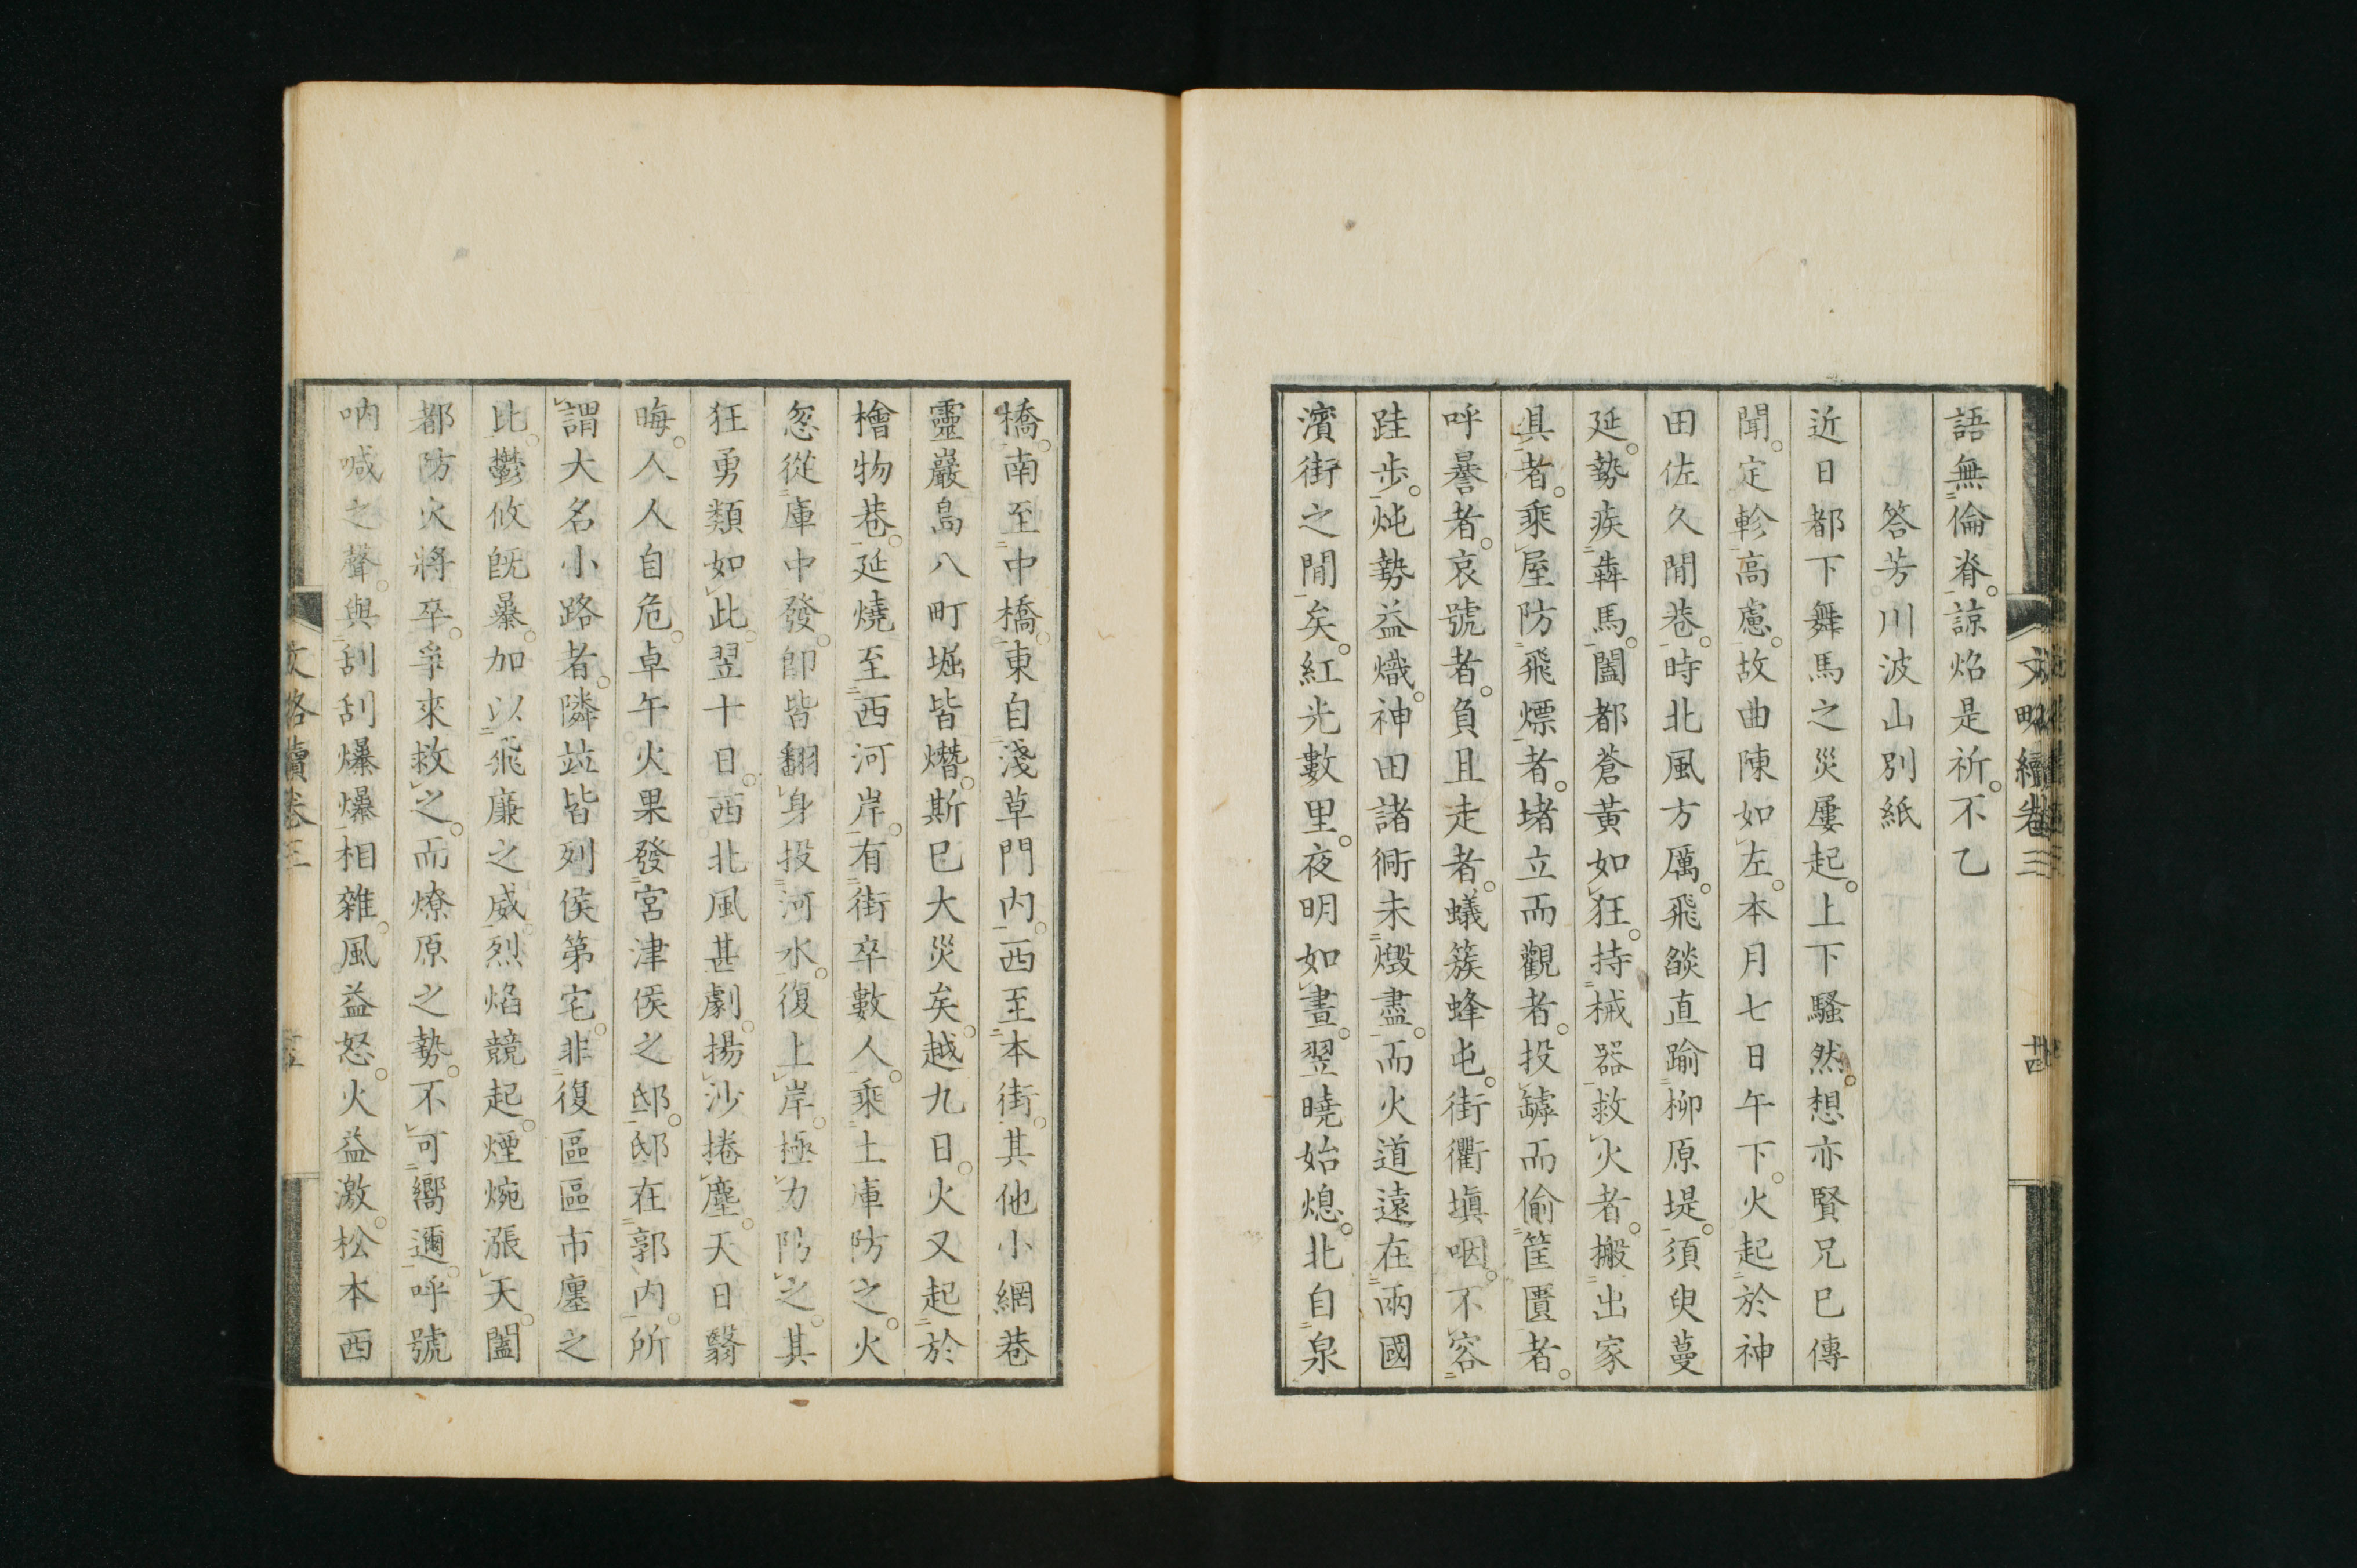 語無倫脊。諒焰是祈。不乙
答芳川波山別紙
近日都下舞馬之災屢起。上下騷然。想亦賢兄巳傳
聞。定軫高慮。故曲陳如左。本月七日午下。火起於神
田佐久間巷。時北風方厲。飛燄直踰柳原堤。須臾蔓
延。勢疾犇馬。闔都蒼黃如狂。持械器救火者。搬出家
具者。乘屋防飛熛者。堵立而觀者。投罅而偷筐匱者。
呼謈者。哀號者。負且走者。蟻簇蜂屯。街衢塡咽。不容
跬步。炖勢益熾。神田諸衕未燬盡。而火道遠在兩國
濱街之間矣。紅光數里。夜明如晝。翌曉始熄。北自泉
橋。南至中橋。東自淺草門內。西至本街。其他小網巷
靈巖島八町堀皆熸。斯巳大災矣。越九日。火又起於
檜物巷。延燒至西河岸。有街卒數人。乘土庫防之。火
忽從庫中發。卽皆翻身投河水。復上岸。極力防之。其
狂勇類如此。翌十日。西北風甚劇。揚沙捲塵。天日翳
晦。人人自危。卓午火果發宮津侯之邸。邸在郭內。所
謂大名小路者。隣竝皆列侯第宅。非復區區市廛之
比。鬱攸旣暴。加以飛廉之威。烈焰競起。煙焥漲天。闔
都防火將卒。爭來救之。而燎原之勢。不可嚮邇。呼號
吶喊之聲。與刮刮爆爆相雜。風益怒。火益激。松本西
文略續卷三
廿四
文略續卷三